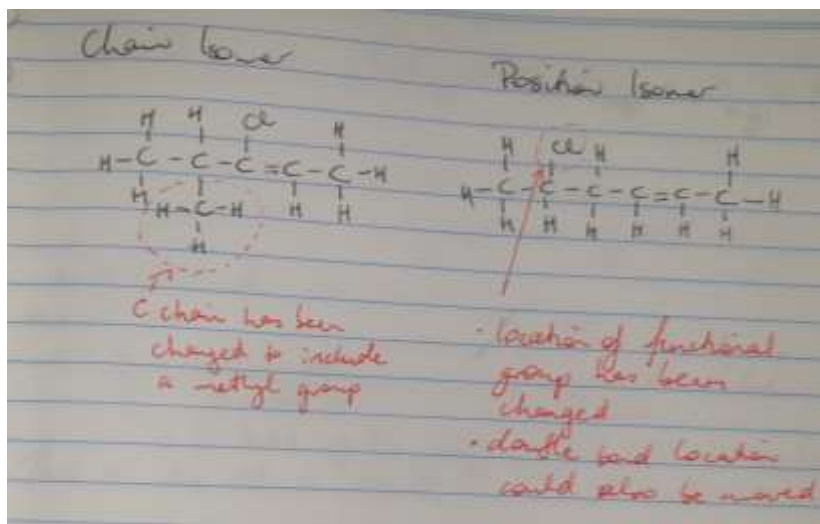 Chain Isomer
H H Cl H
H-C - C - C = C - C -H
H H-C-H H H
H
C chain has been
changed to include
a methyl group
Position Isomer
H Cl H H
H-C-C-C-C=C-C-H
H H H H H H
• location of functional
group has been
changed
• double bond location
could also be moved